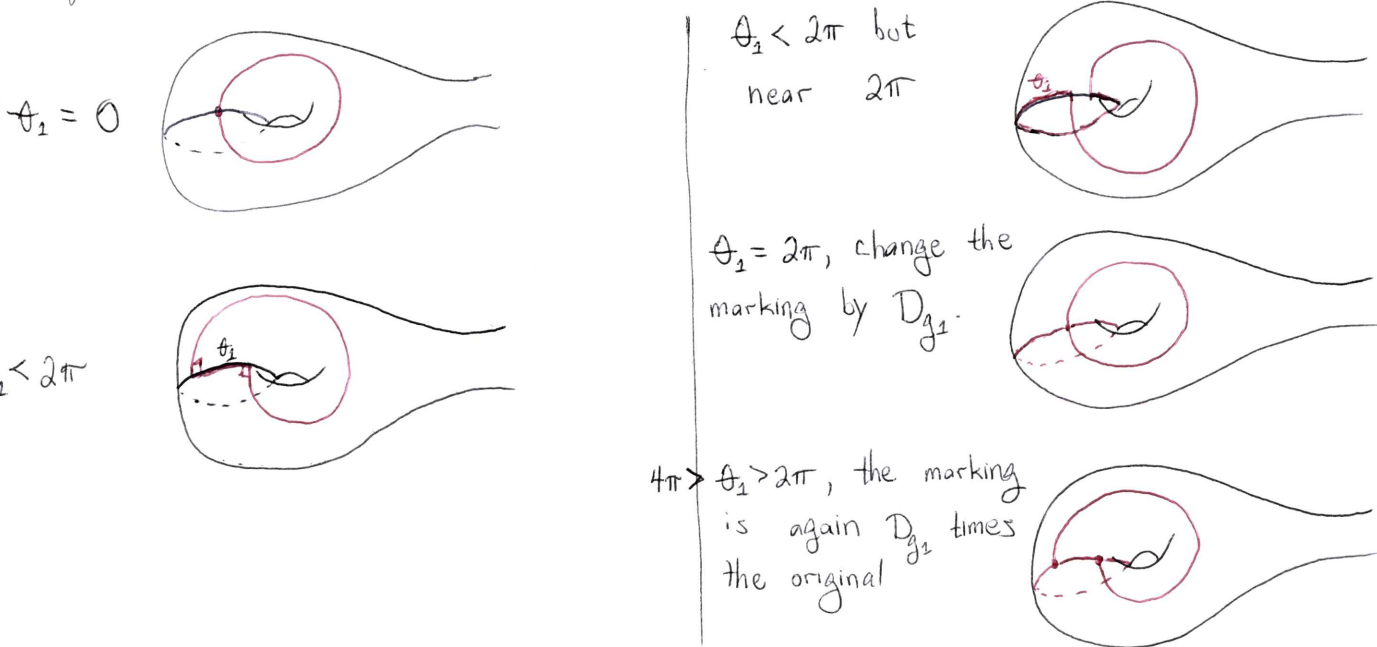 θ₁ = 0
θ₁
< 2π
θ₁ < 2π but
near 2π
θ₁
θ₁ = 2π, change the
marking by D_g₁.
4π > θ₁ > 2π, the marking
is again D_g₁ times
the original